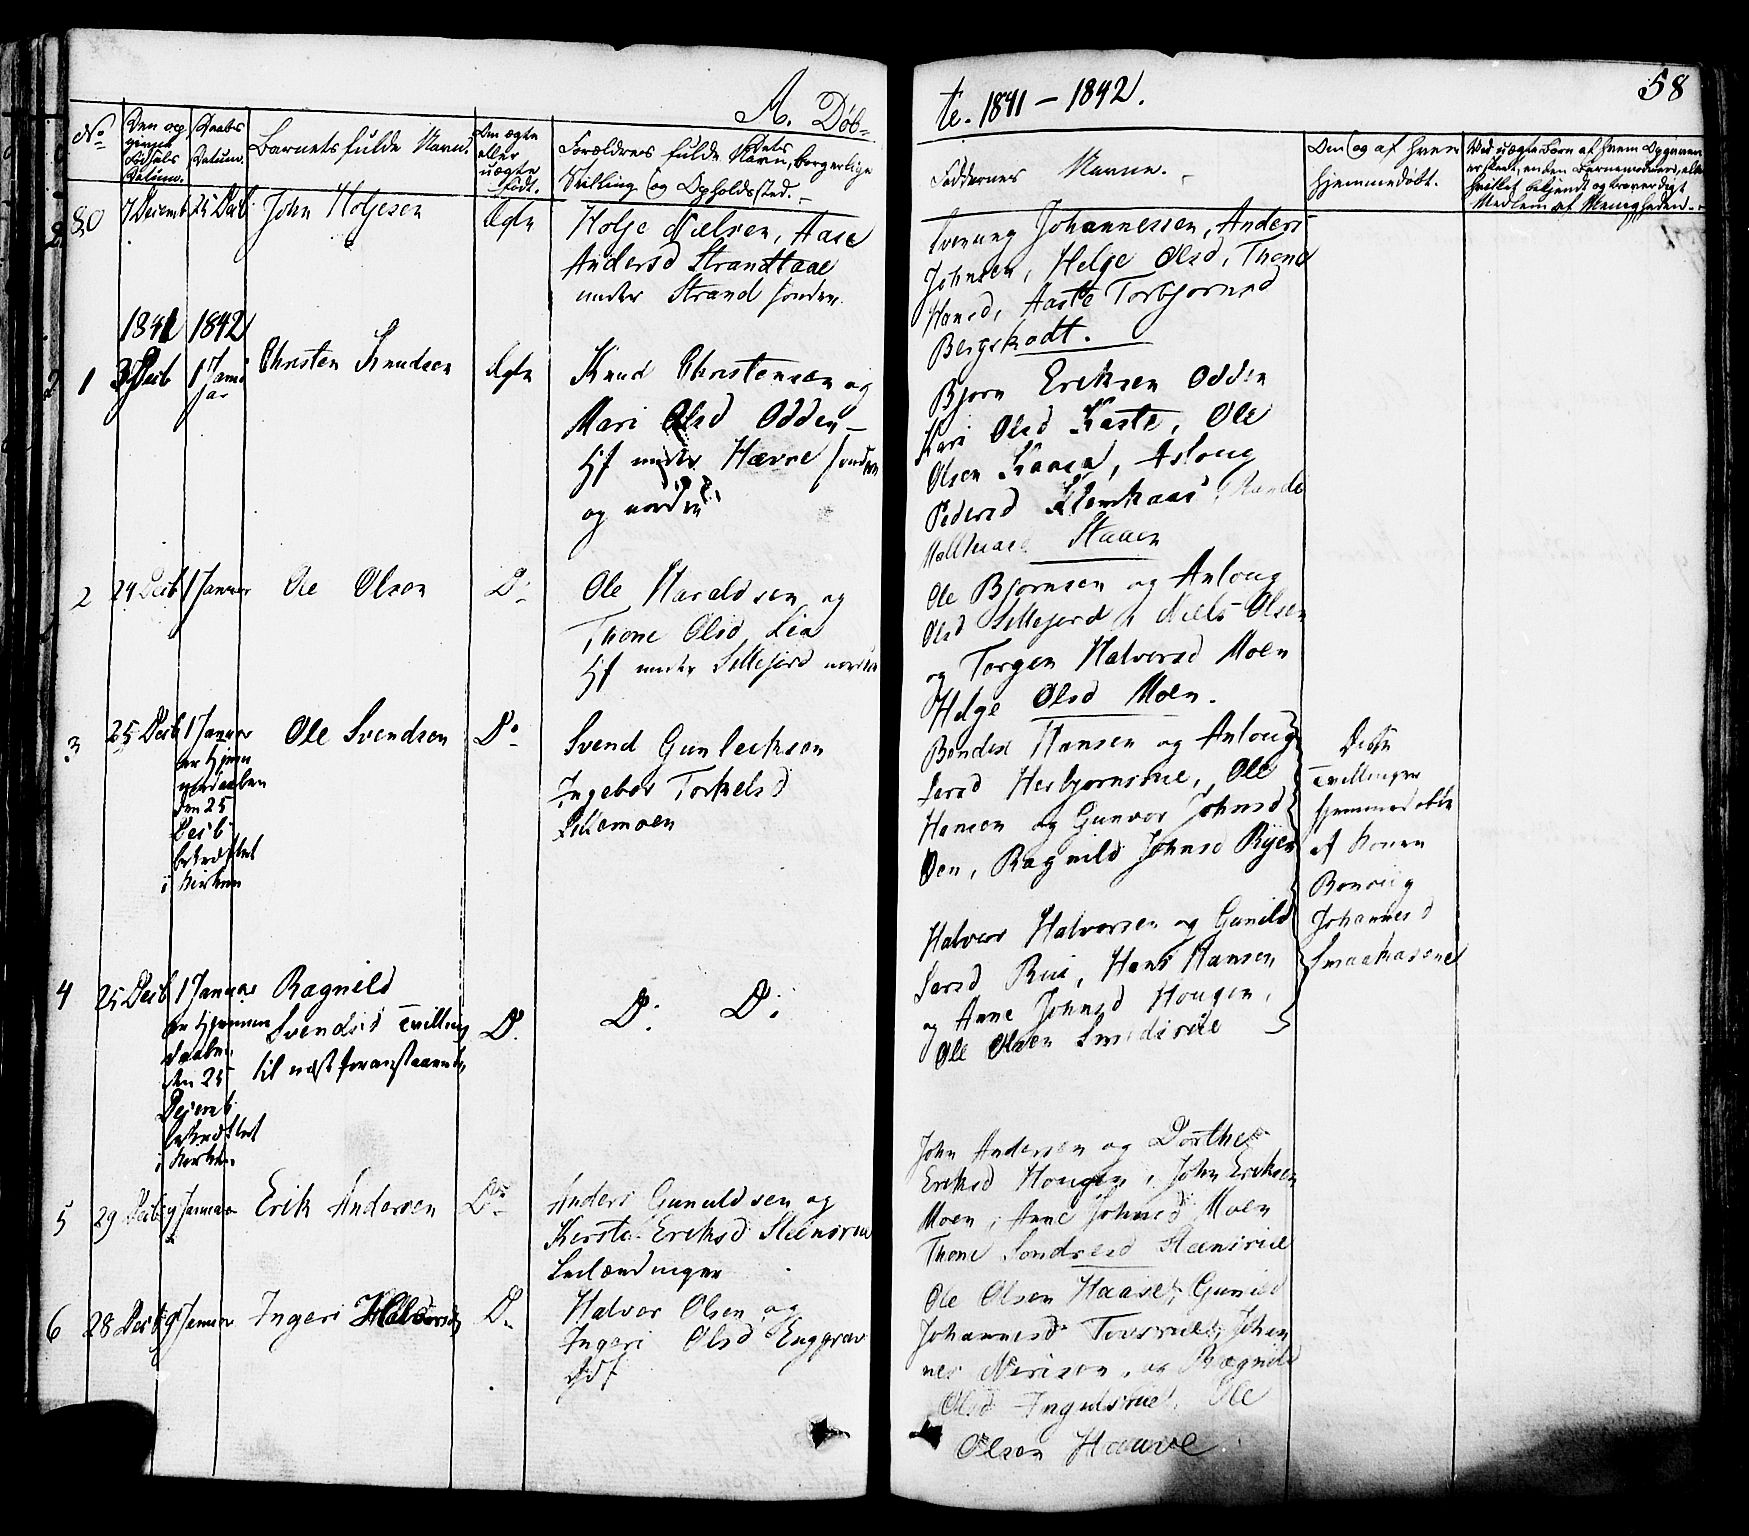 A. Døb-
te. 1841 - 1842.
58
No
Den og
Fødsels
Datum.
Daabs
Datum.
Barnets fulde Navn.
Om ægte
eller
uægte
født.
Forældres fulde Navn, borgerlige
Stilling og Opholdssted.
Faddernes Navne.
Om og af hvem
hjemmedøbt.
80
7 Decemb
25 Decb
John Holjesen
Ægte
Holje Nielsen, Aase
Andersd Strandtaae
under Strand sønden
Johannessen, Anders
Johnsen, Helge Olsd, Thone
Hansd, Aaste Torbjørnsd
Bergskadt.
1841 1842
1
Decb
1 Janu
Christen Knudsen
Ægte
Knud Christensen og
Mari Olsd Odden
Hf under Hævne sønden
og norden
Bjørn Eriksen Odden
Kari Olsd Kaste, Ole
Olsen Kaasa, Asloug
Pedersd
Staaen
2
24 Decb
1 Januar
Ole Olsen
Do
Ole Haraldsen og
Thone Olsd Lia
Hf under Sillejord norden
Ole Bjørnsen og Anloug
Olsd Sillejord, Niels Olsen
og Torgen Halvorsd Moen
Helge Olsd Moen.
3
25 Decb
1 Januar
er hjem
medaaben
den 25
Decb
bekræftet
i Kirken
Ole Svendsen
Do
Svend Gunleiksen
Ingebor Torkelsd
Lillemoen
Hansen og Anloug
Larsd Hesbjørnsrue, Ole
Hansen og Gunvor Johnsd
Øen, Ragnild Johnsd Ryen
Disse
Tvillinger
hjemmedøbte
af Konen
Ronnug
Johannesd
Smaakasene
4
25 Decb
1 Januar
er hjemme
daaben
den 25
Decemb
bekræftet
i Kirken
Ragnild
Svendsd Tvilling
til næstforanstaaende
D.
D. D.
Halvor Halvorsen og Gunild
Larsd Rui, Hans Hansen
og Anne Johnsd Hougen,
Ole Olsen Smedsrue
5
29 Decb
9 Januar
Erik Andersen
Do
Anders Gunuldsen og
Kersti Eriksd Steensrue
Leilændinger
John Andersen og Dorthe
Eriksd Hougen, John Eriksen
Moen, Anne Johnsd Moen
Thone Sondresd Steensrue
6
28 Decb
9 Januar
Ingeri Halvorsd
D.
Halvor Olsen og
Ingeri Olsd Enggrav
Ole Olsen Haave, Gunild
Johannesd Tovsrue, Johan
nes Nirisen, og Ragnild
Olsd Ingulsrue, Ole
Olsen Haave